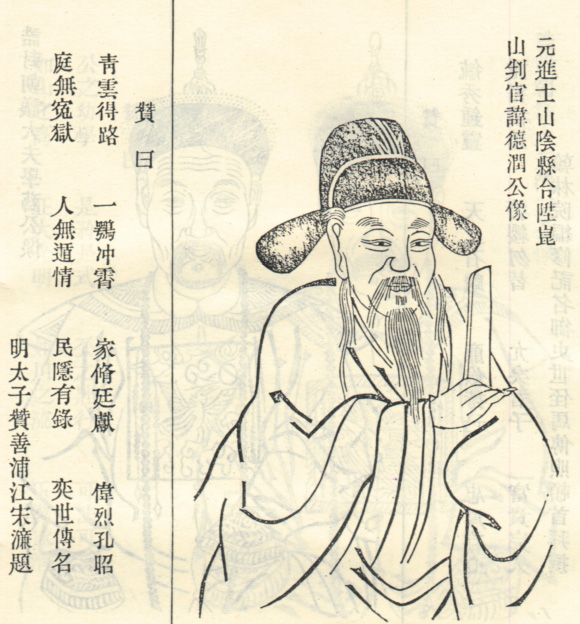 元進士山陰縣合陞崑
山判官諱德潤公像
贊曰
青雲得路 一鶚冲霄 家脩廷獻 偉烈孔昭
庭無冤獄 人無遁情 民隱有錄 奕世傳名
明太子贊善浦江宋濂題